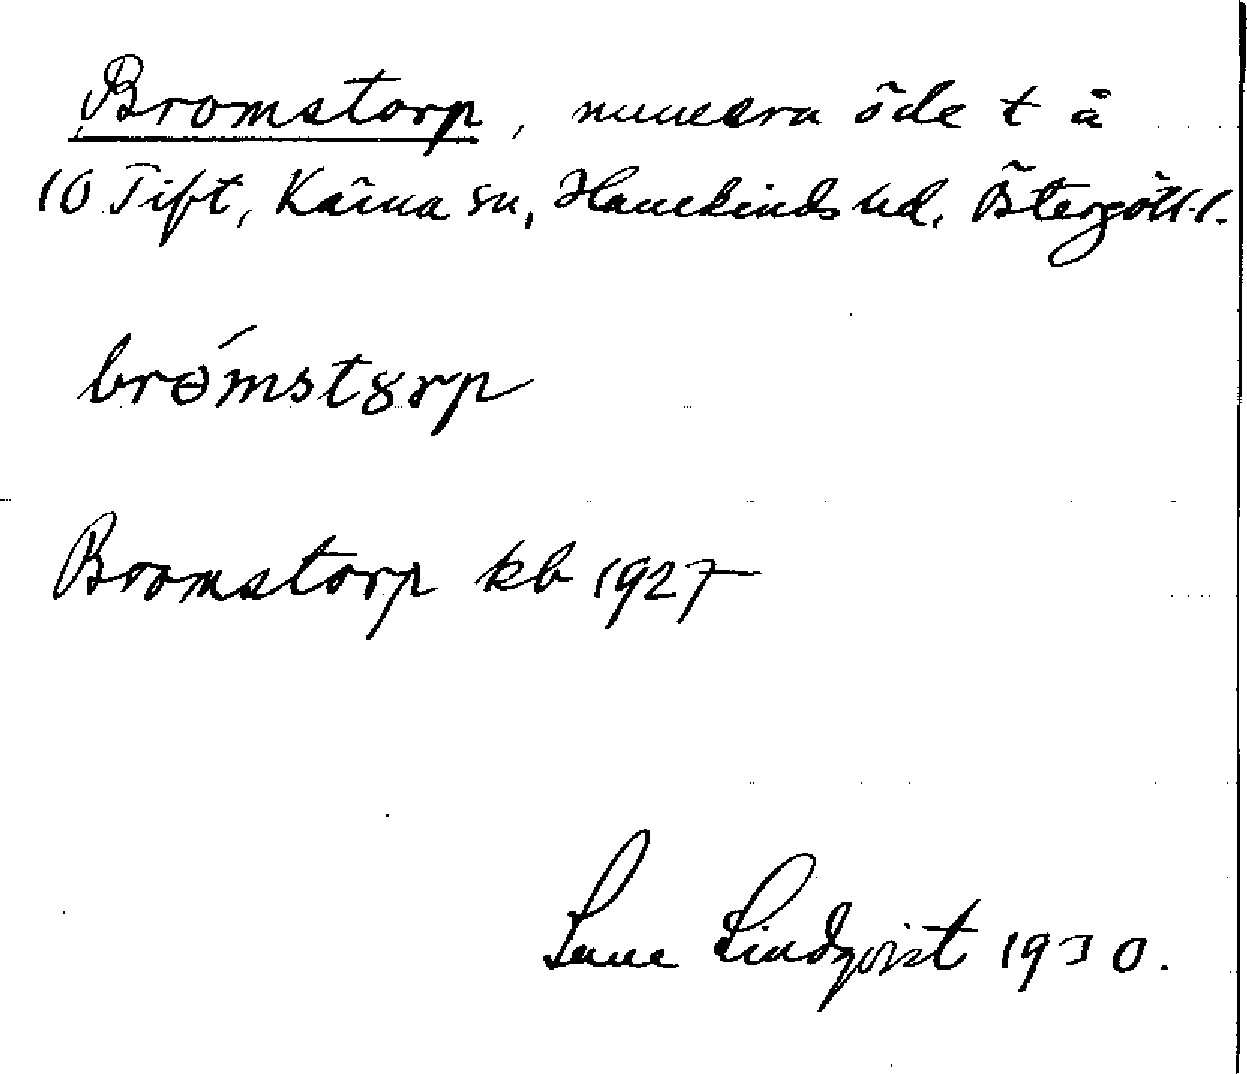 Bromstorp, numera öde t å
10 Tift, Kärna sn, Hanekinds hd. Östergötl. l.
brǿmstȣrp
Bromstorp kb 1927
Sune Lindqvist 1930.